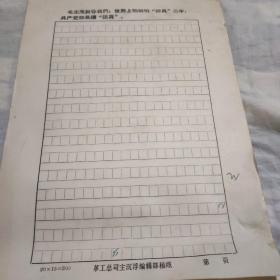 毛主席教导我们：世界上怕就怕“认真”二字，
共产党就最讲“认真”。
20×15=300
革工总司主沉浮编辑部稿纸
第 页